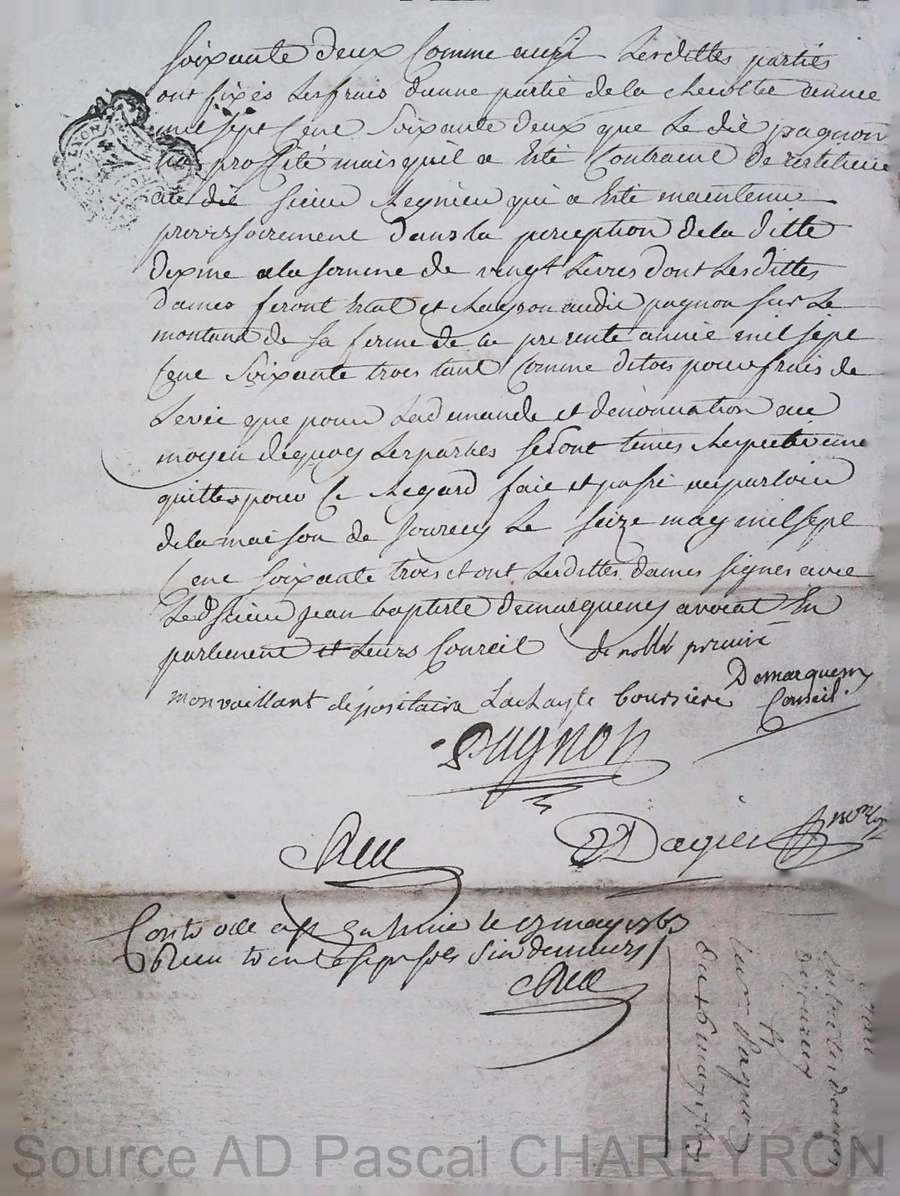 Soixante deux Comme aussy Lesdittes parties
ont fixés Les frais d'une partie de la année
mil sept Cent Soixante deux que Le dit pagnon
proffité mais quil a Esté Contraint de restituer
au dit sieur Regnier qui a Esté maintenu
provisoirement dans la perception de la ditte
dixme a la somme de vingt Livres dont Lesdittes
dames feront Etat et Raison audit pagnon sur Le
montant de sa ferme de la presente année mil sept
Cent Soixante trois tant Comme pour frais de
Levée que pour La demande et denonciation au
moyen de quoy Les parties seront tenues Respectivement
quittes pour Ce Regard fait et passé au parloir
de la maison de Jourcey Le seize may mil sept
Cent soixante trois et ont Lesdittes dames signés avec
Led sieur jean baptiste demarquency avocat En
parlement et Leurs Conseil de prieure
monvaillant dépositaire boursière Demarquency
Conseil
Pagnon
Dagier
le 17 may 1763
LYON
Entre les dames
de jourcey
Et
Pagnon
Du 16 may 1763
Source AD Pascal CHAREYRON